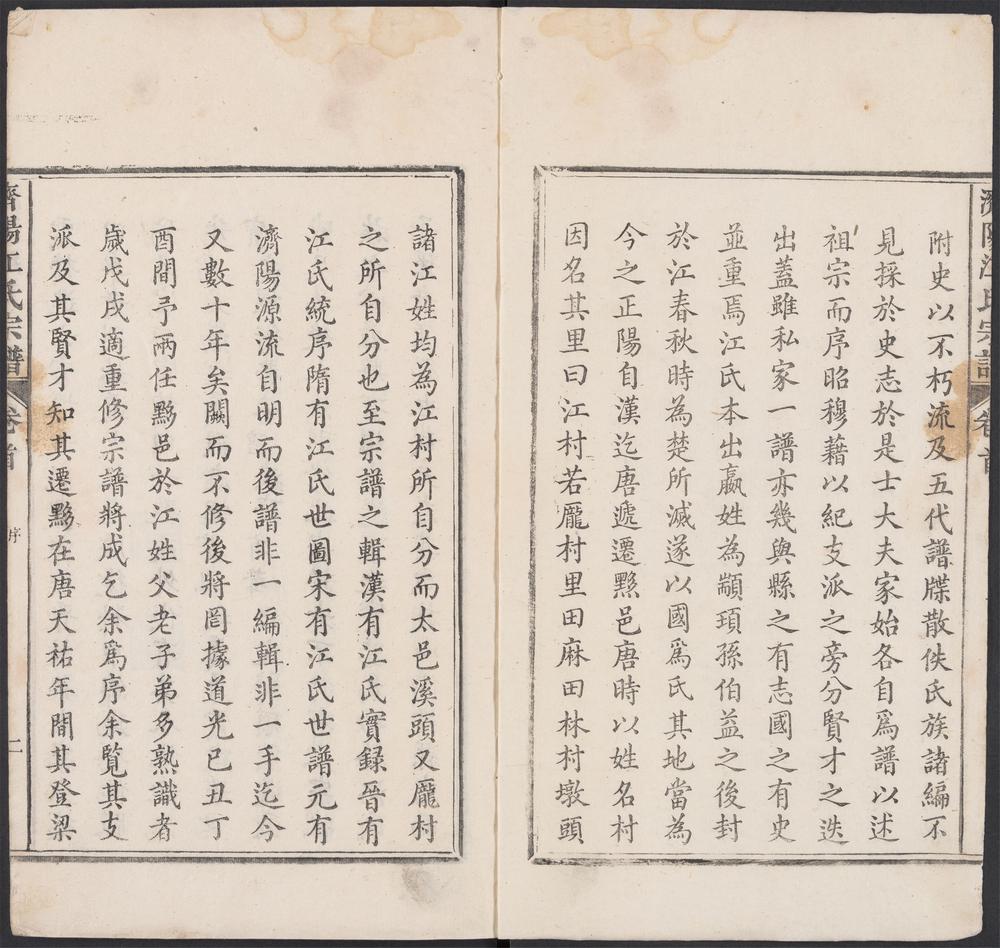 濟陽江氏宗譜
卷首
附史以不朽流及五代譜牒散佚氏族諸編不
見採於史志於是士大夫家始各自爲譜以述
祖宗而序昭穆藉以紀支派之旁分賢才之迭
出蓋雖私家一譜亦幾與縣之有志國之有史
並重焉江氏本出嬴姓為顓頊孫伯益之後封
於江春秋時為楚所滅遂以國爲氏其地當為
今之正陽自漢迄唐遞遷黟邑唐時以姓名村
因名其里曰江村若龐村里田麻田林村墩頭
諸江姓均為江村所自分而太邑溪頭又龐村
之所自分也至宗譜之輯漢有江氏實録晉有
江氏統序隋有江氏世圖宋有江氏世譜元有
濟陽源流自明而後譜非一編輯非一手迄今
又數十年矣闕而不修後將罔據道光己丑丁
酉間予兩任黟邑於江姓父老子弟多熟識者
歲戊戌適重修宗譜將成乞余爲序余覽其支
派及其賢才知其遷黟在唐天祐年間其登梁
濟陽江氏宗譜
卷首
序
二